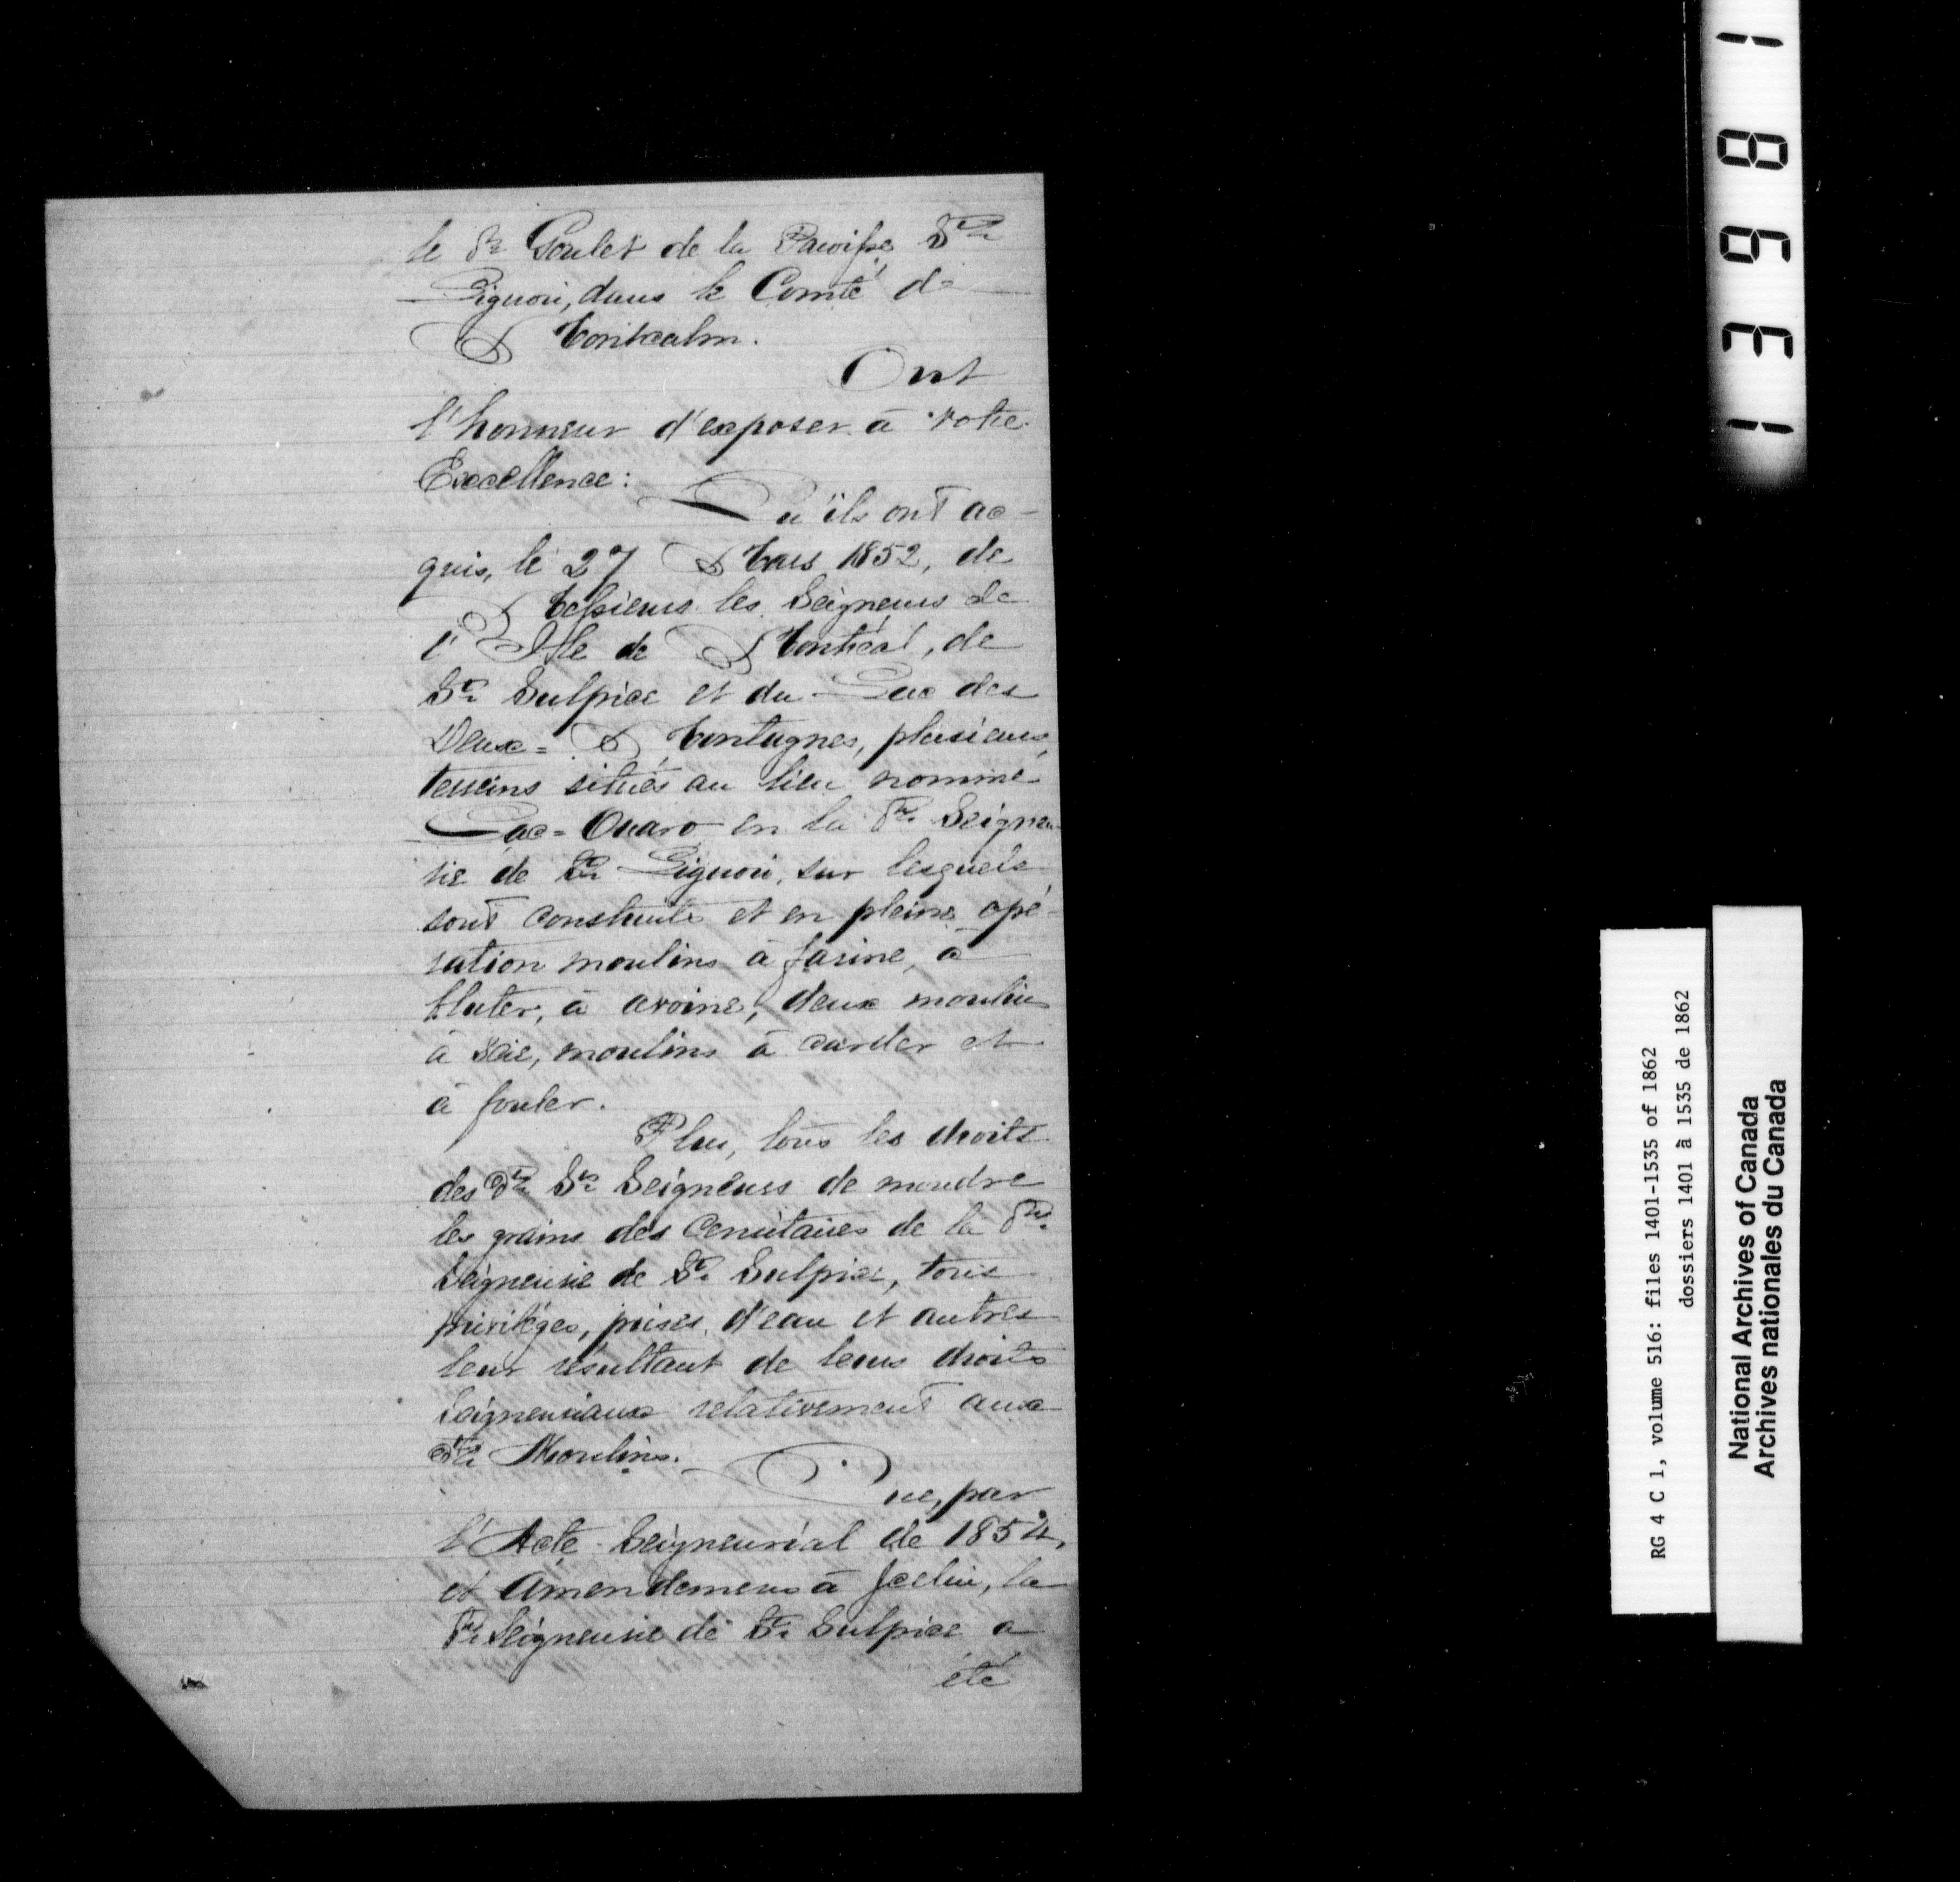 le Sr Goulet de la Paroisse St
Liguori, dans le Comté de
Montcalm.
Ont
l'honneur d'exposer à Votre
Excellence:
Qu'ils ont ac-
quis, le 27 Mars 1852, de
Messieurs les Seigneurs de
l'Isle de Montréal, de
St Sulpice et du Lac des
Deux=Montagnes, plusieurs
terreins situés au lieu nommé
Lac=Ouaro en la dte Seigneu-
rie de St Liguori, sur lesquels
sont construits et en pleine opé-
ration moulins à farine, à
bluter, à avoine, deux moulins
à scie, moulins à carder et
à fouler.
Plus, tous les droits
des dts Srs Seigneurs de moudre
les grains des Censitaires de la dte
Seigneurie de St Sulpice, tous
privilèges, prises d'eau et autres
leur résultant de leurs droits
Seigneuriaux relativement aux
dts Moulins.
Que, par
l'Acte Seigneurial de 1854,
et Amendemens à Icelui, la
dte Seigneurie de St Sulpice a
été
13981
RG 4 C 1, volume 516: files 1401-1535 of 1862
dossiers 1401 à 1535 de 1862
National Archives of Canada
Archives nationales du Canada